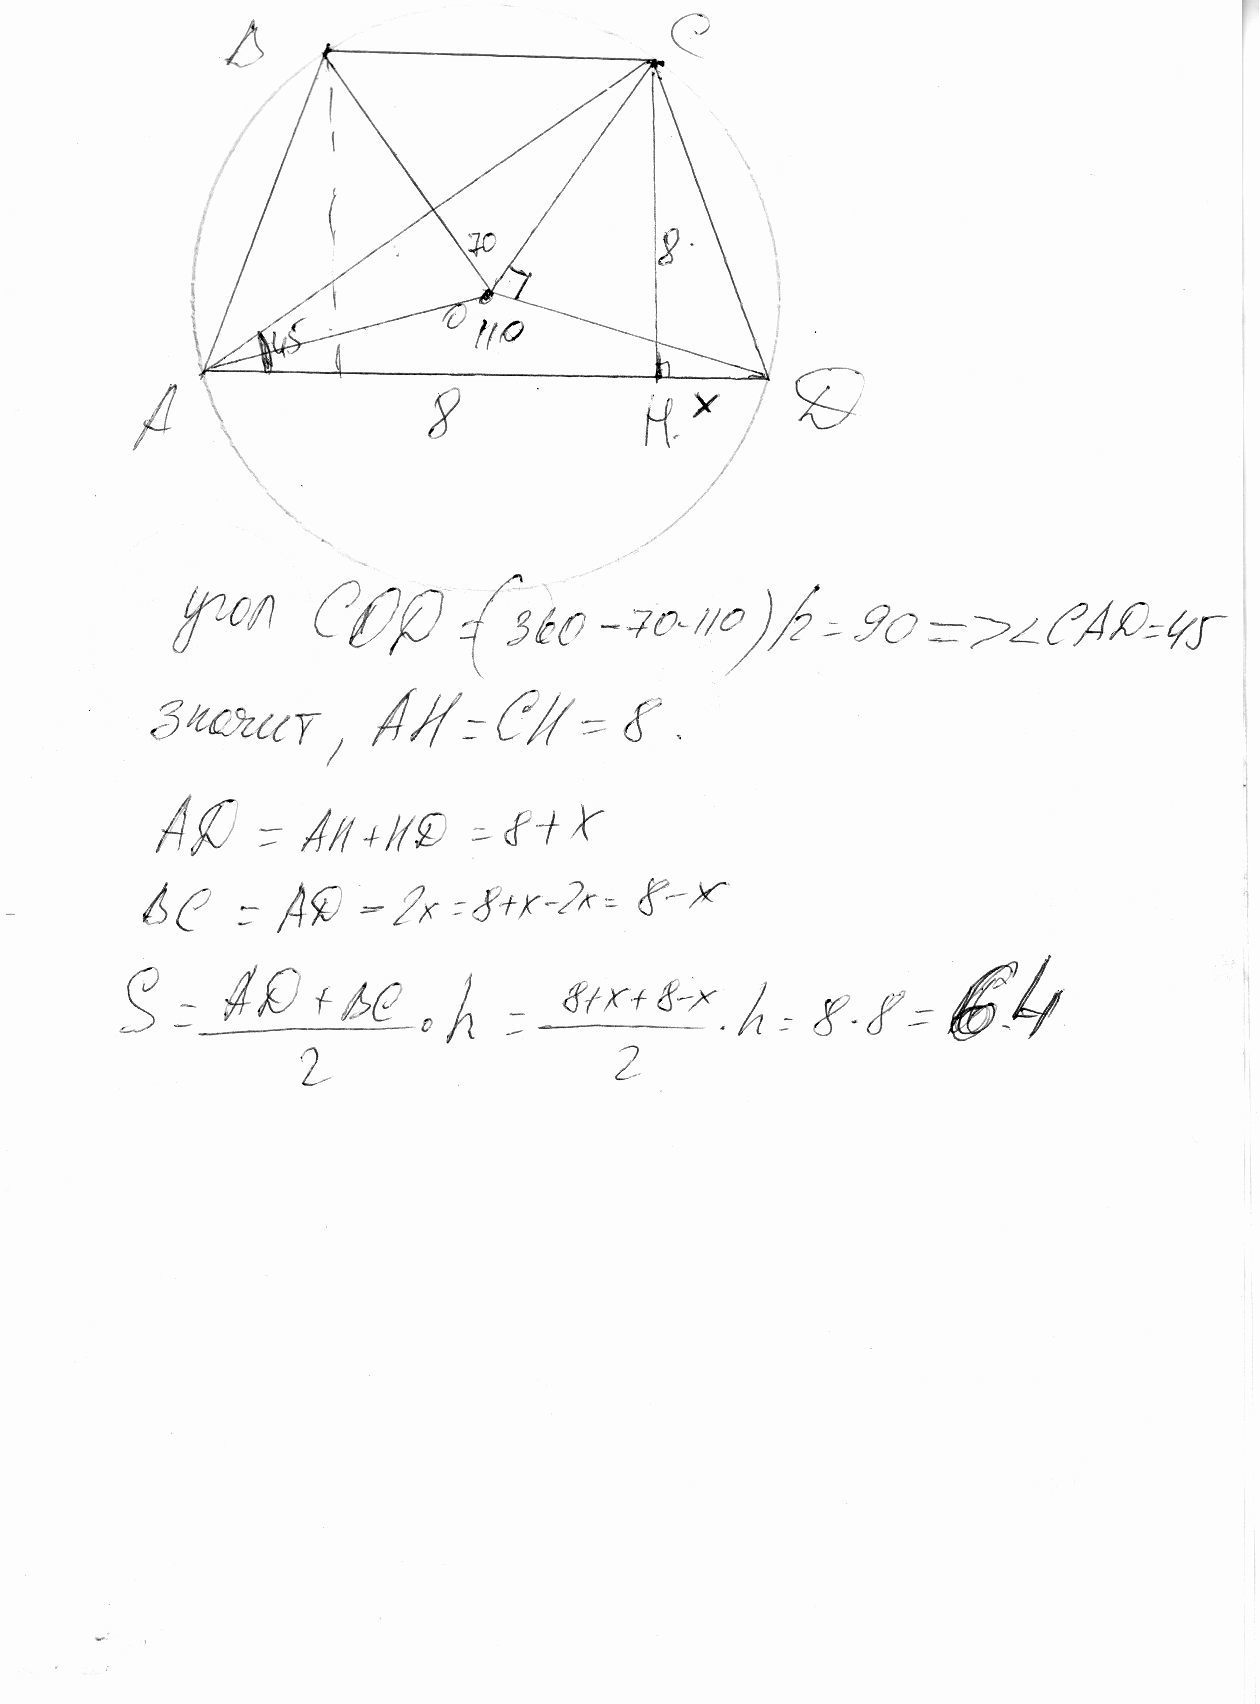 B
C
70
8
O
110
45
A
8
H
x
D
угол COD = (360-70-110)/2 = 90 => ∠CAD=45
значит, AH = CH = 8.
AD = AH + HD = 8 + x
BC = AD - 2x = 8+x-2x = 8-x
S = (AD + BC)/2 · h = (8+x+8-x)/2 · h = 8·8 = 64